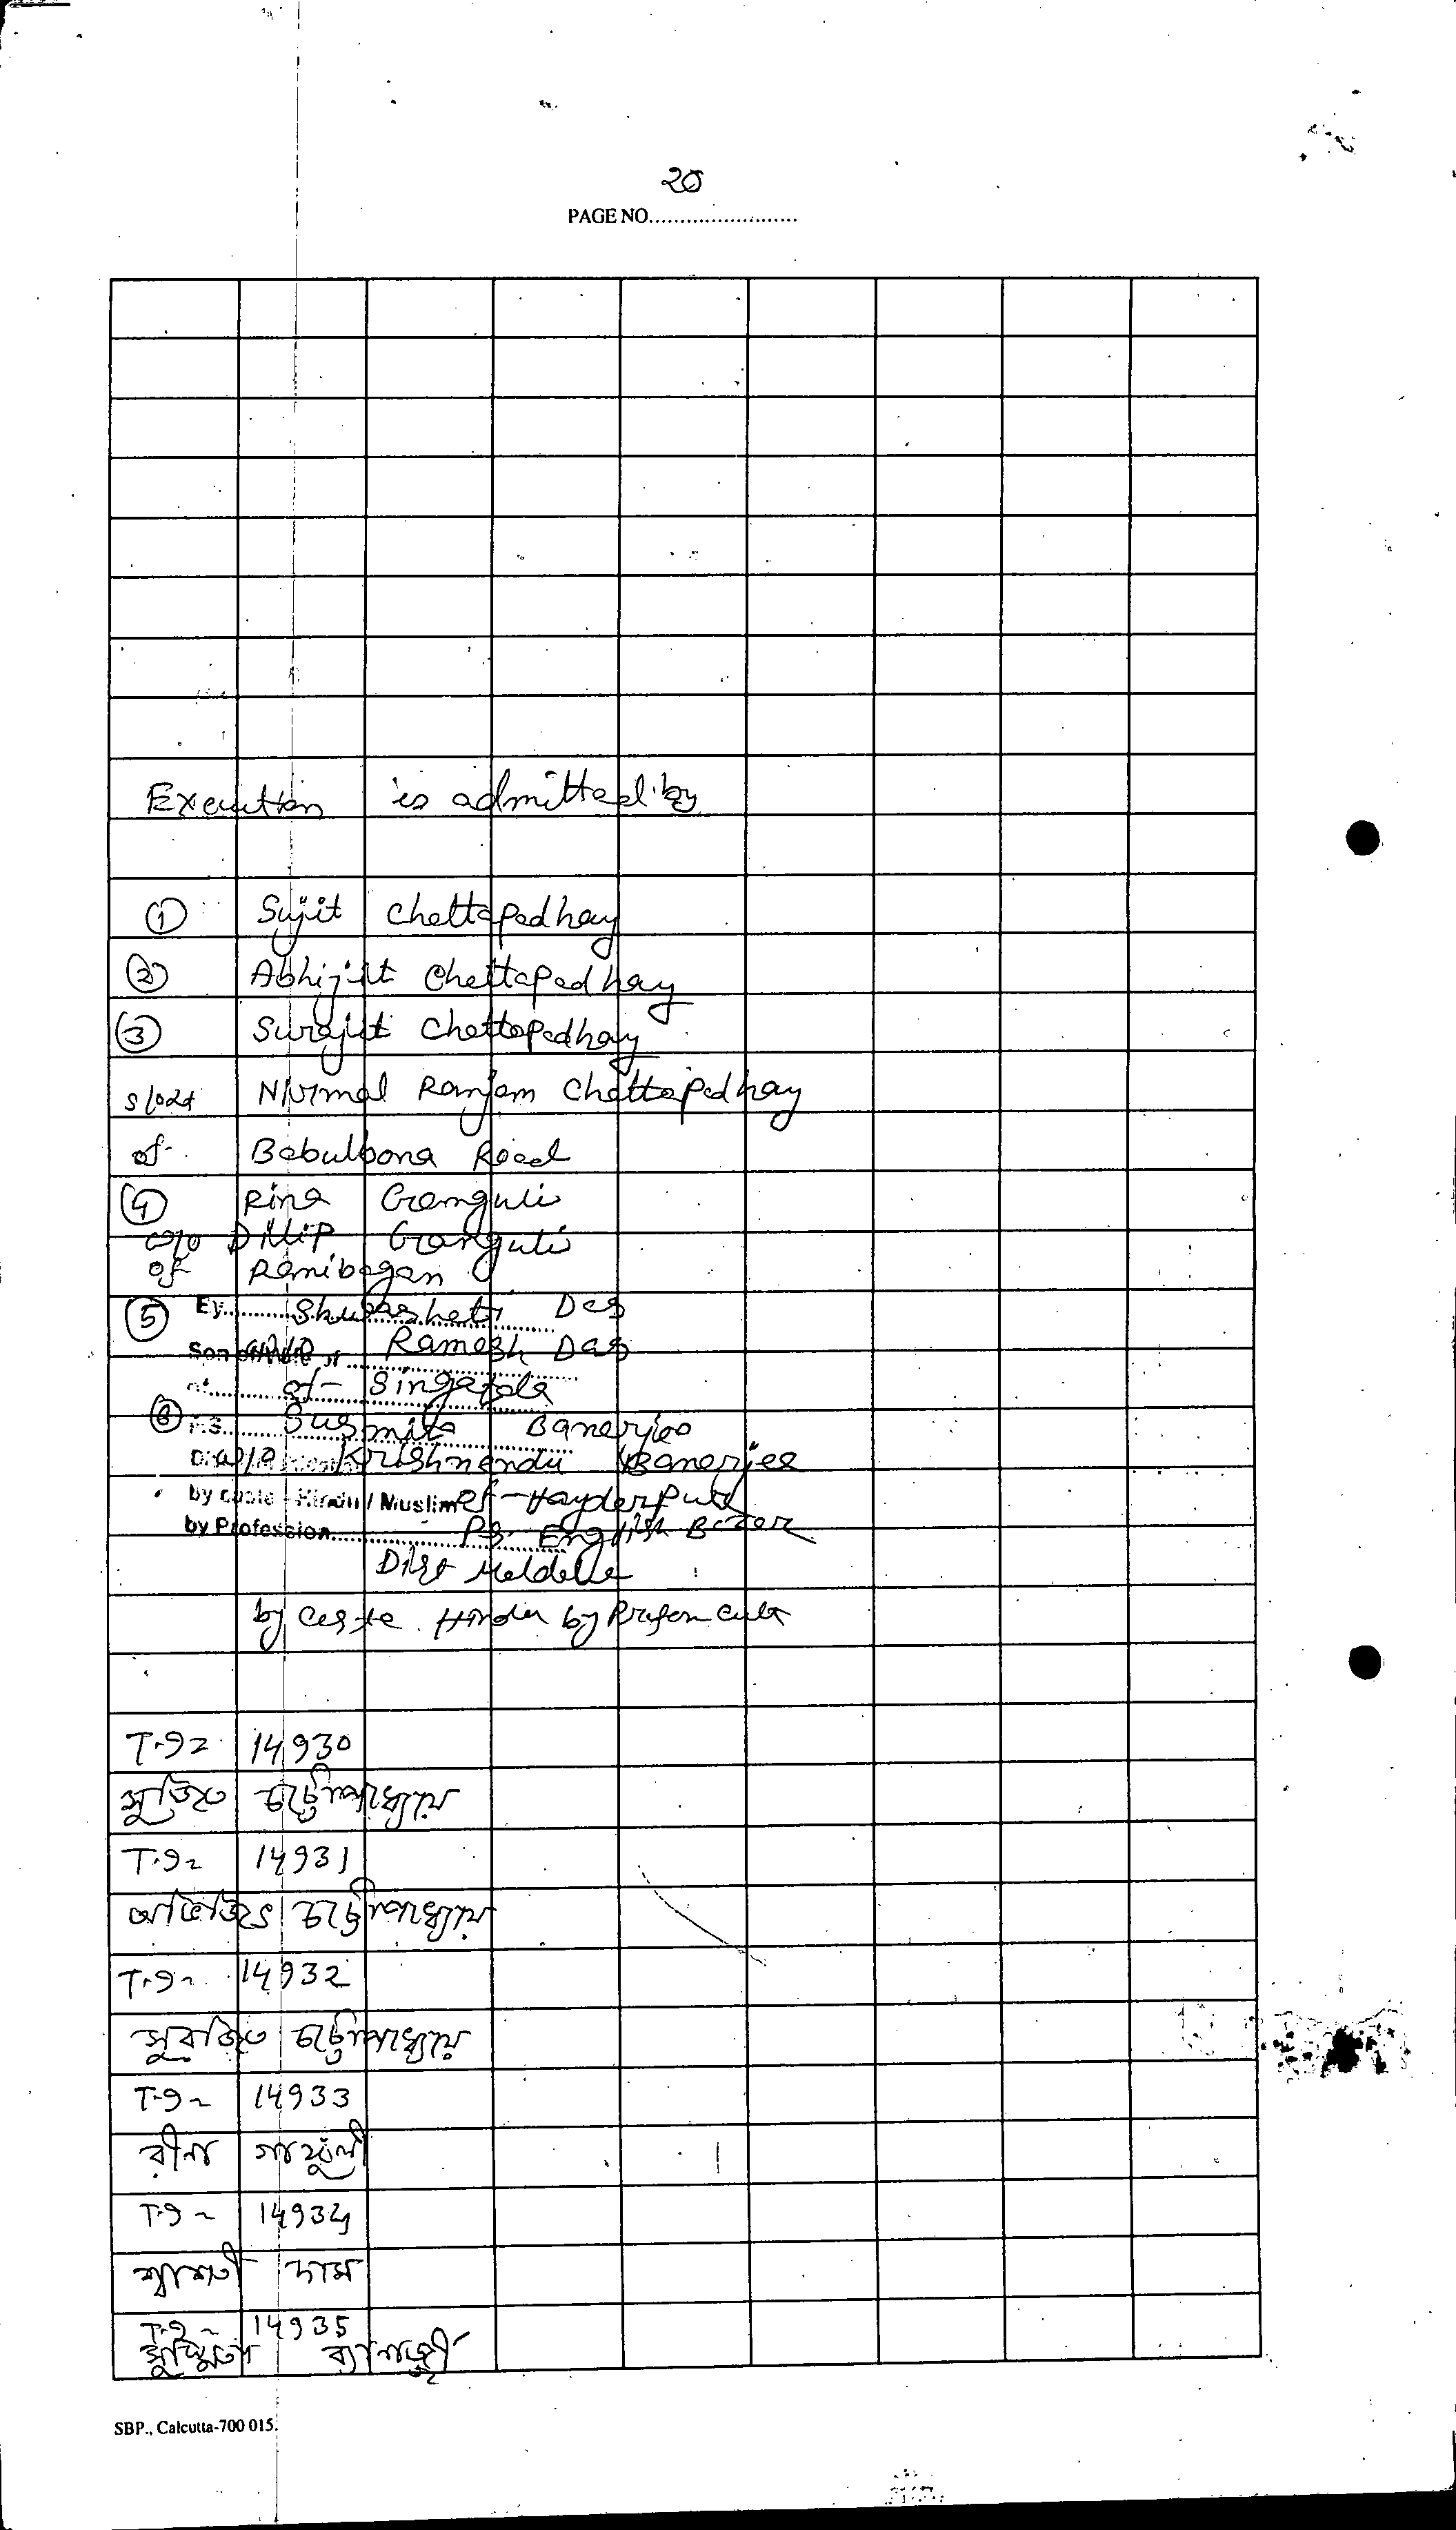 20
PAGE NO.........................
Execution is admitted by
① Sujit Chattapadhay
② Abhijit Chattapadhay
③ Surajit Chattapadhay
s/o Nirmal Ranjan Chattapadhay
of Babulbona Road
④ Rina Ganguli
w/o Dillip Ganguli
of Ranibagan
⑤ By Shubashati Das
Son of/Wife of w/o Ramesh Das
of Singatola
⑥ P.S. Susmita Banerjee
w/o Krishnendu Banerjee
by caste - Hindu / Muslim of - Hayderpur
by Profession PS. English Bazar
Dist Maldah
by caste Hindu by Profsn Cult
T.92 14930
সুজিত চট্টোপাধ্যায়
T.92 14931
অভিজিৎ চট্টোপাধ্যায়
T.9~ 14932
সুরজিত চট্টোপাধ্যায়
T-9~ 14933
রীনা গাঙ্গুলী
T-9~ 14934
শ্বাশতী দাস
T-9~ 14935
সুস্মিতা ব্যানার্জ্জী
SBP., Calcutta-700 015.